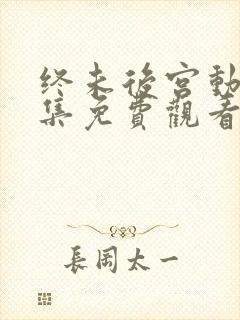 终末後宮動
集免費觀看
長岡太一